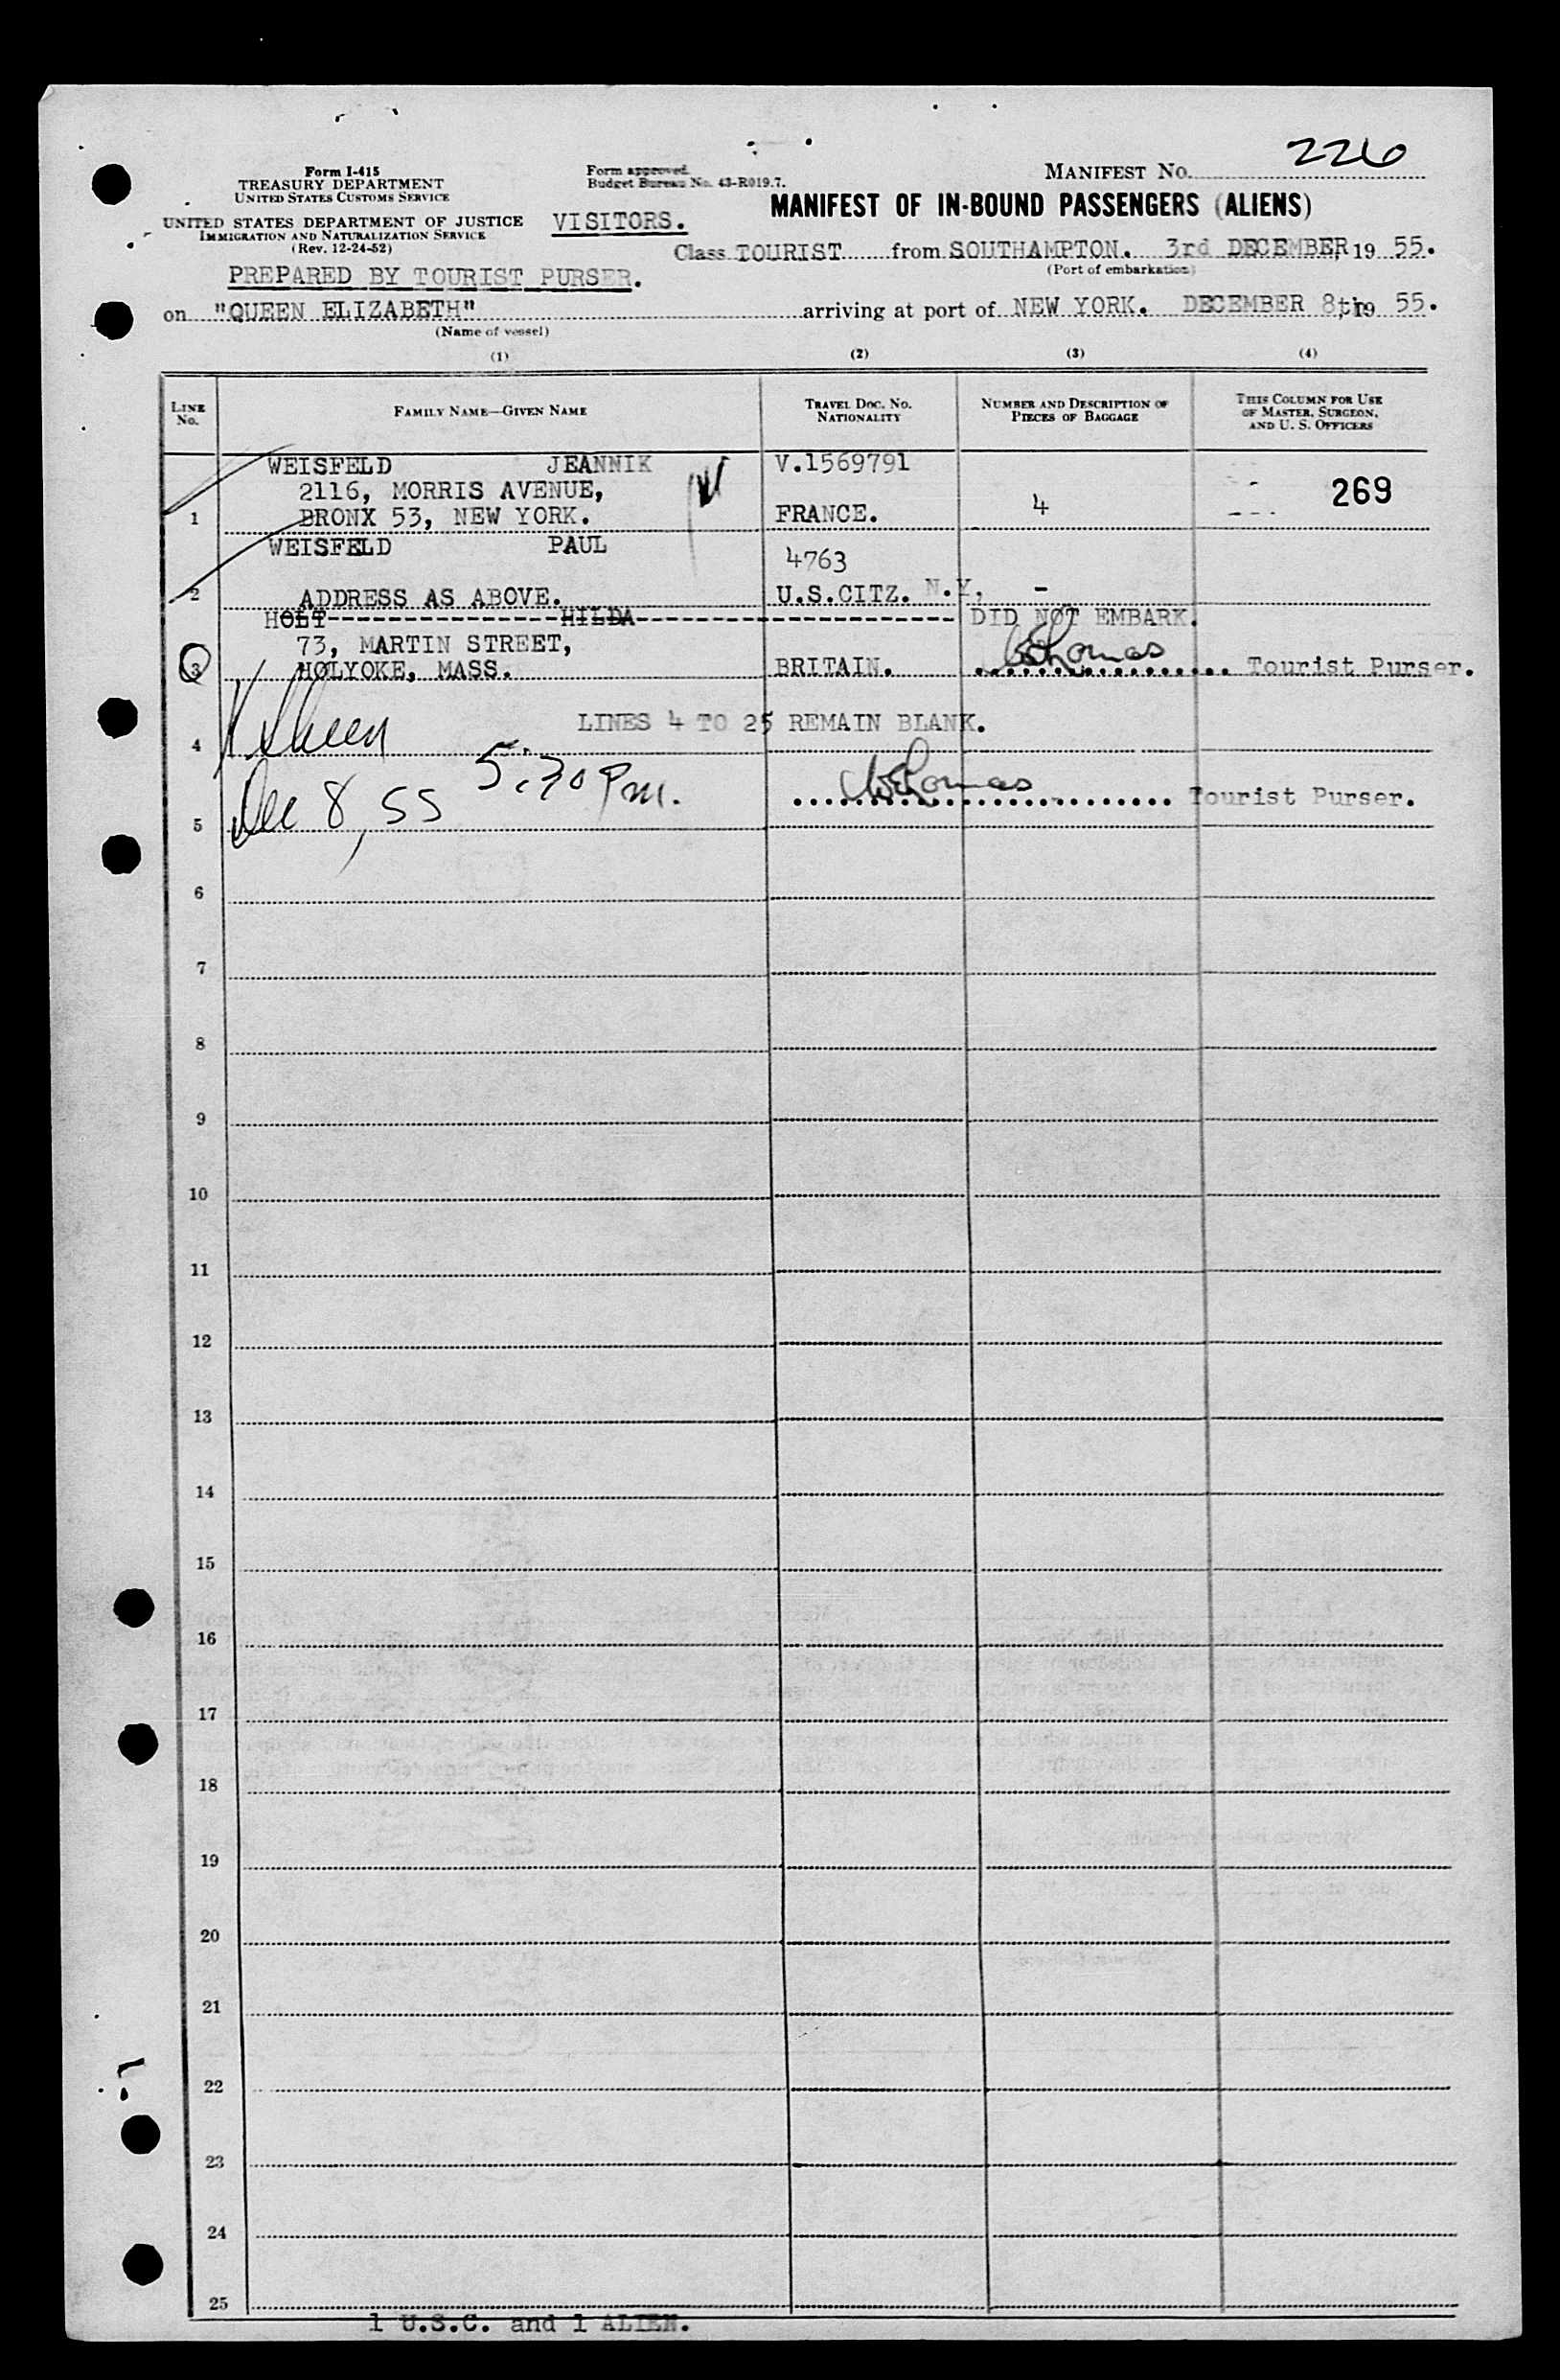 226
Form I-415
TREASURY DEPARTMENT
UNITED STATES CUSTOMS SERVICE
UNITED STATES DEPARTMENT OF JUSTICE
IMMIGRATION AND NATURALIZATION SERVICE
(Rev. 12-24-52)
Form approved.
Budget Bureau No. 43-R019.7.
VISITORS.
MANIFEST NO.
MANIFEST OF IN-BOUND PASSENGERS (ALIENS)
Class TOURIST from SOUTHAMPTON. 3rd DECEMBER, 19 55.
(Port of embarkation)
PREPARED BY TOURIST PURSER.
on "QUEEN ELIZABETH" arriving at port of NEW YORK. DECEMBER 8th 19 55.
(Name of vessel)
(1) (2) (3) (4)
LINE NO. FAMILY NAME—GIVEN NAME TRAVEL DOC. NO. NATIONALITY NUMBER AND DESCRIPTION OF PIECES OF BAGGAGE THIS COLUMN FOR USE OF MASTER, SURGEON, AND U. S. OFFICERS
WEISFELD JEANNIK V.1569791
2116, MORRIS AVENUE, 269
1 BRONX 53, NEW YORK. FRANCE. 4
WEISFELD PAUL 4763
2 ADDRESS AS ABOVE. U.S.CITZ. N.Y. -
HOLT HILDA DID NOT EMBARK.
73, MARTIN STREET,
3 HOLYOKE, MASS. BRITAIN. Tourist Purser.
LINES 4 TO 25 REMAIN BLANK.
4
5.30 Pm.
Dec 8, 55
5 Tourist Purser.
6
7
8
9
10
11
12
13
14
15
16
17
18
19
20
21
22
23
24
25
1 U.S.C. and 1 ALIEN.